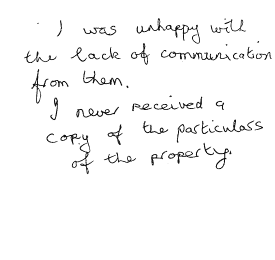 I was unhappy with
the lack of communication
from them.
I never received a
copy of the particulars
of the property.